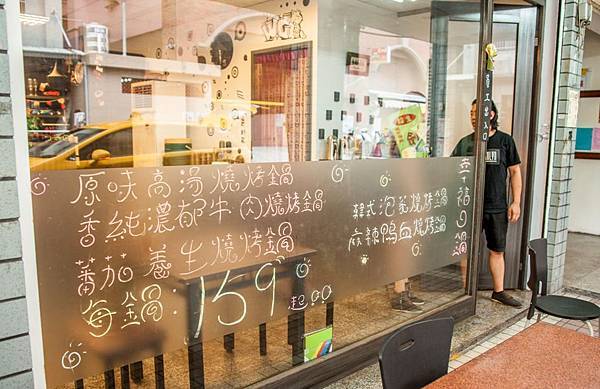 原味高湯燒烤鍋
香純濃郁牛肉燒烤鍋
蕃茄養生燒烤鍋
每鍋.159起
韓式泡菜燒烤鍋
麻辣鴨血燒烤鍋
幸福
員工出入口